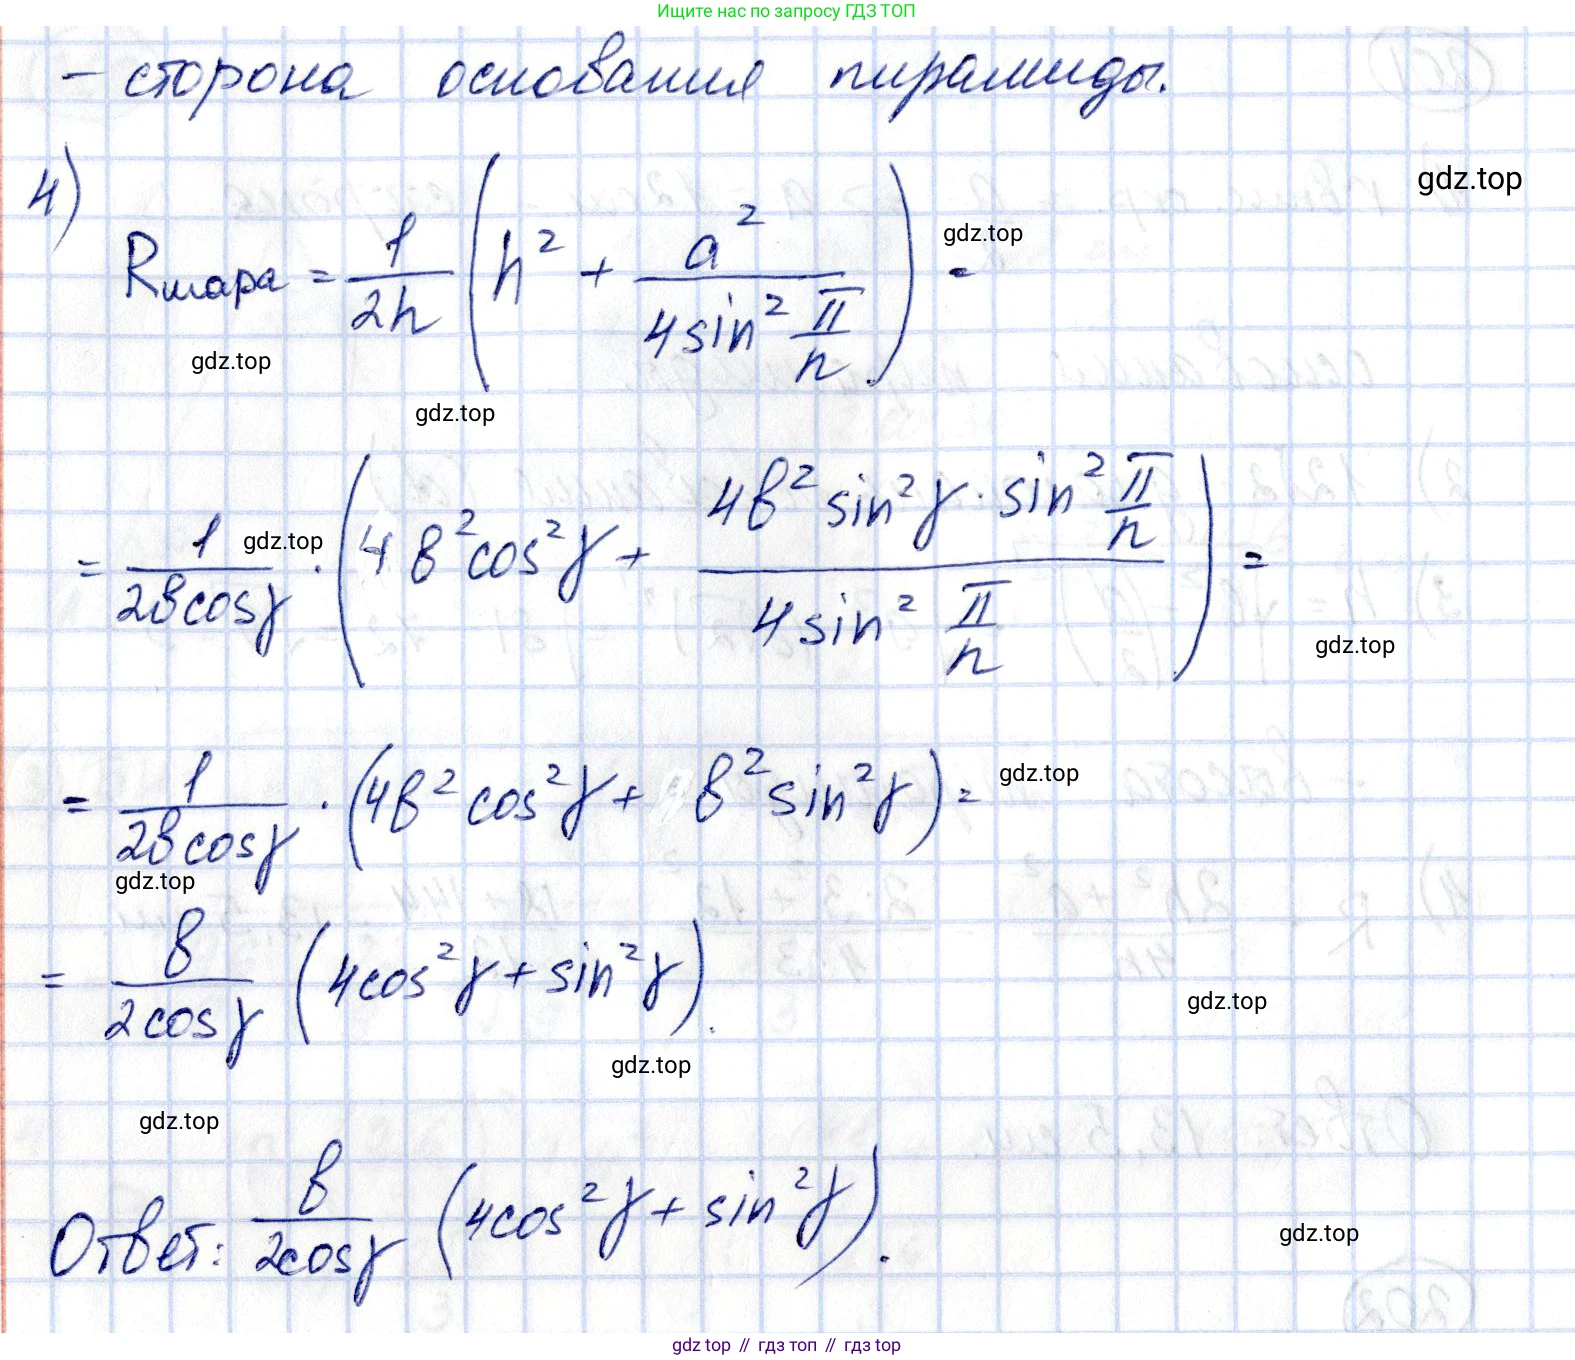 Ищите нас по запросу ГДЗ ТОП
– сторона основания пирамиды.
gdz.top
4) Rшара = 1/2h (h² + a²/(4sin² π/n)) =
gdz.top
gdz.top
gdz.top
= 1/(2вcosγ) · (4в²cos²γ + (4в² sin²γ · sin² π/n)/(4sin² π/n)) =
gdz.top
gdz.top
= 1/(2вcosγ) · (4в² cos²γ + в² sin²γ) =
gdz.top
gdz.top
= в/(2cosγ) (4cos²γ + sin²γ).
gdz.top
gdz.top
gdz.top
Ответ: в/(2cosγ) (4cos²γ + sin²γ).
gdz.top
gdz.top // гдз топ // gdz.top